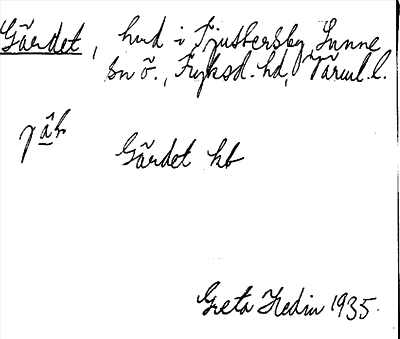 Gärdet, hmd i Ljustersby, Sunne
sn ö., Fryksd. hd, Värml. l.
Gärdet hb
Greta Hedin 1935.